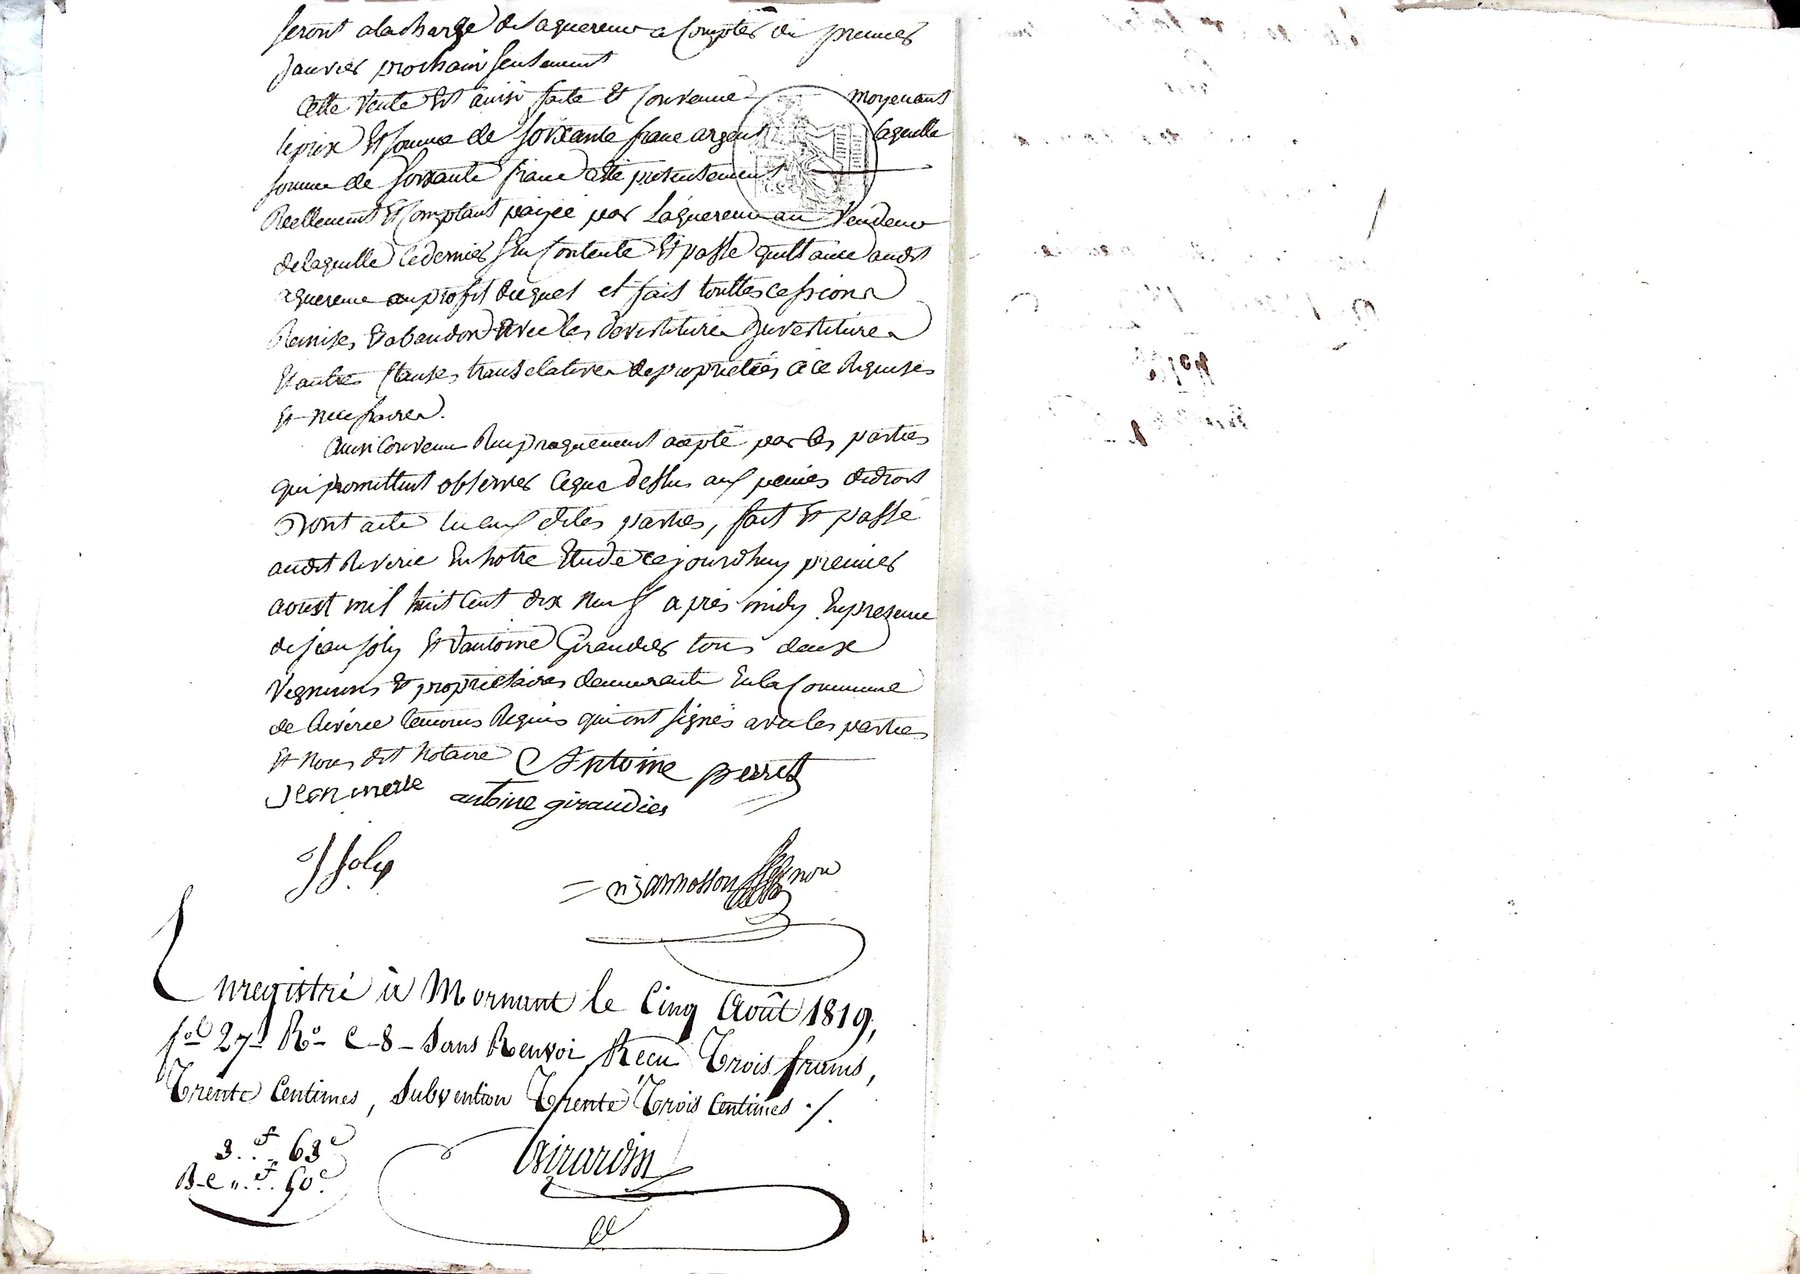 seront a la charge de laquereur a Compter du premier
Janvier prochain seulement
Cette vente est ainsi faite et Convenue moyenant
le prix et somme de soixante franc argent laquelle
somme de soixante franc a été presentement
Reellement et Comptant payée par laquereur au Vendeur
de laquelle ce dernier s'en Contente et passe quittance audit
aquereur au profit duquel et fait touttes cessions
Remises et abandon avec les devestiture Investiture
et autres Clauses translatives de proprietées à ce Requises
et necessaires.
Ainsi convenu Reciproquement acepté par les parties
qui promettent observer ce que dessus aux peines de droit
Dont acte lu aux dites parties, fait et passé
audit Riverie En notre Etude ce jourdhuy premier
aoust mil huit Cent dix neuf apres midy En presence
de jean joly et d'antoine Giraudier tous deux
Vignerons et proprietaires demeurants En la Commune
de Riverie temoins Requis qui ont signés avec les parties
et Nous dit Notaire Antoine perret
Jean merle antoine giraudier
J Joly
Enregistré à Mornant le Cinq Août 1819,
fol 27 Ro C 8 Sans Renvoi Reçu Trois francs,
Trente Centimes, Subvention Trente Trois Centimes ./.
3.f 63c
Girardin